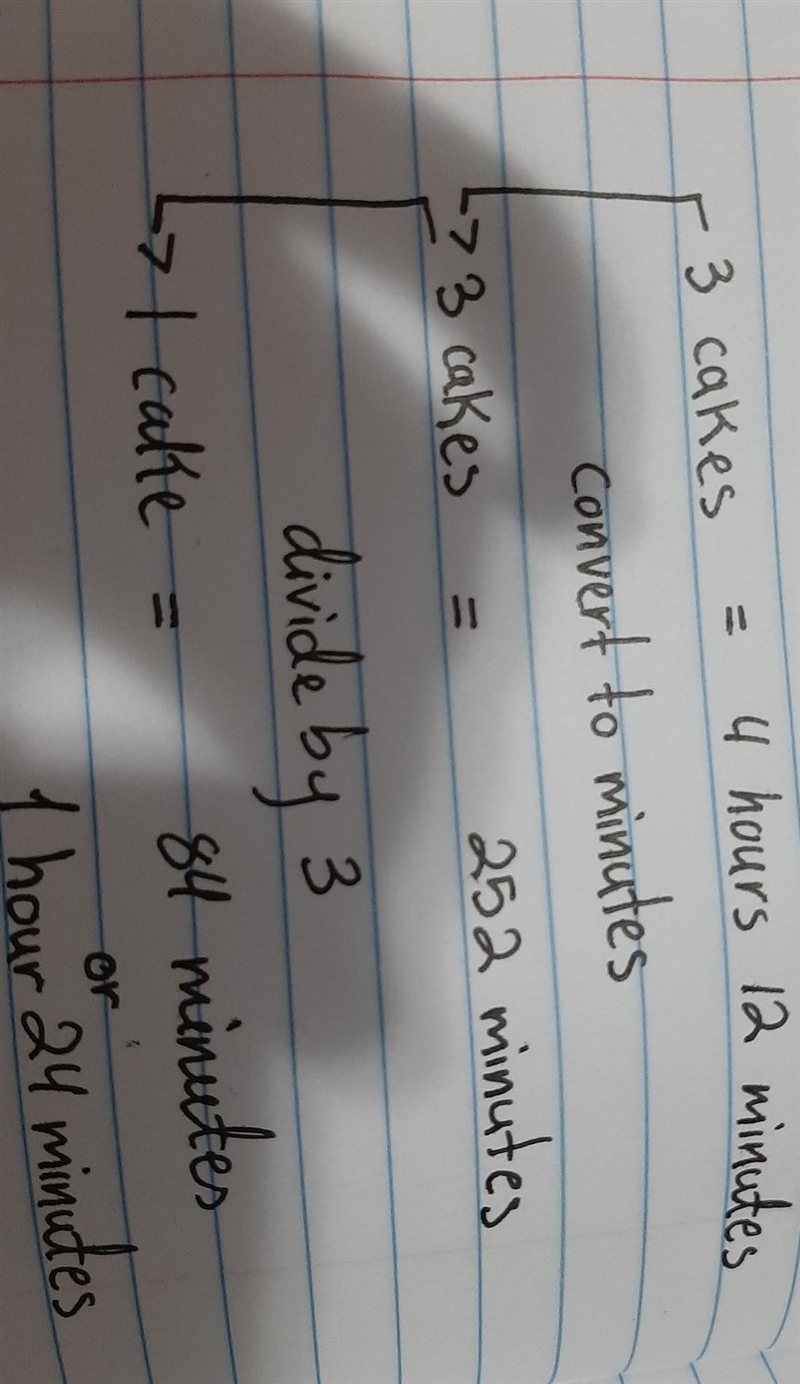 3 cakes = 4 hours 12 minutes
convert to minutes
3 cakes = 252 minutes
divide by 3
1 cake = 84 minutes
or
1 hour 24 minutes